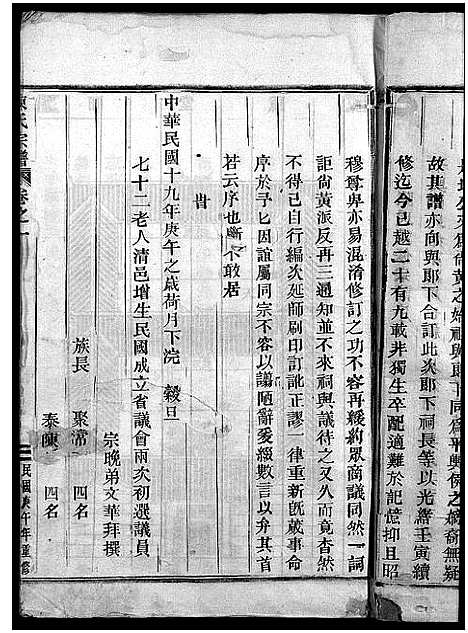 故其譜亦向與耶下合訂此次耶下祠長等以光緒壬寅續
修迄今已越二十有九載非獨生卒配適難於記憶抑且昭
穆尊卑亦易混淆修訂之功不容再緩約眾商議同然一詞
詎尚黃派反再三通知並不來祠與議待之又久而竟杳然
不得已自行編次延師刷印訂訛正謬一律重新既蕆事命
序於予匕因誼屬同宗不容以譾陋辭爰綴數言以弁其首
若云序也斷不敢居
旹
中華民國十九年庚午之歲荷月下浣 穀旦
七十二老人清邑增生民國成立省議會兩次初選議員
宗晚弟文華拜撰
族長 聚常 四名
泰陳 四名
氏宗譜 卷之一
民國庚午年重修